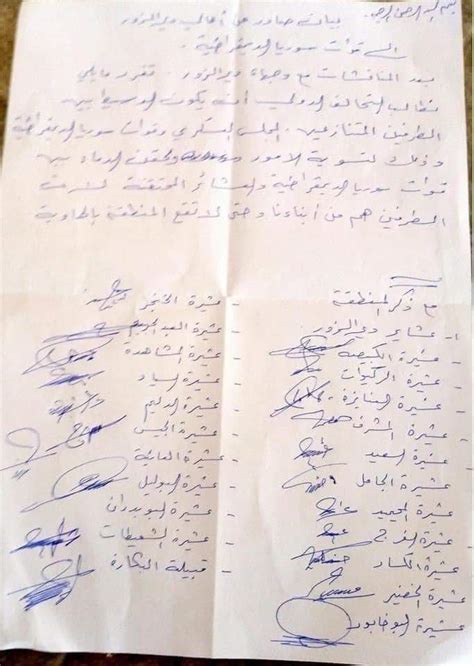 بسم الله الرحمن الرحيم
بيان صادر من أهالي دير الزور
إلى قوات سوريا الديمقراطية.
بعد المناقشات مع وجهاء دير الزور. تقرر مايلي
نطالب التحالف الدولي أن يكون الوسيط بين
الطرفين المتنازعين. المجلس العسكري وقوات سوريا الديمقراطية
وذلك لتسوية الأمور وحقن الدماء بين
قوات سوريا الديمقراطية والعشائر المختلفة لأن
الطرفين هم من أبناءنا وحتى لا تقع المنطقة بالهاوية
مع ذكر المنطقة
١- عشاير دير الزور
- عشيرة الكبيصه
- عشيرة الركيوات
- عشيرة
- عشيرة المشرف
- عشيرة السعيد
- عشيرة الجامل
عشيرة الحميد
عشيرة الفرج
عشيرة الكساد
عشيرة الخنفير
عشيرة البوخابور
- عشيرة الخنجر
- عشيرة العبد الكريم
- عشيرة المشاهدة
- عشيرة السياد
- عشيرة الدليم
- عشيرة الجيس
- عشيرة العانية
- عشيرة البوليل
- عشيرة البوبدران
- عشيرة الشعيطات
- قبيلة البكارة